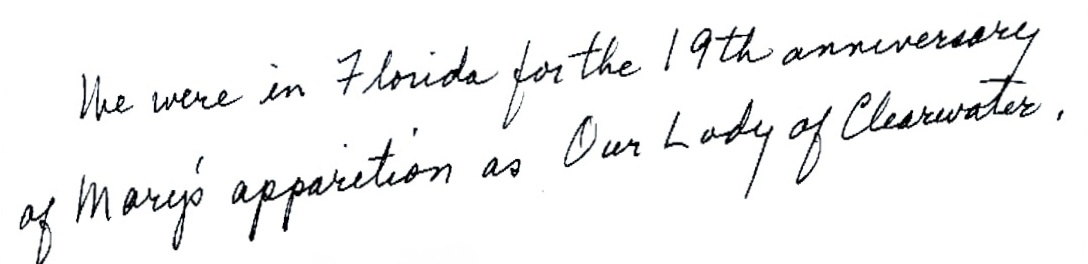 We were in Florida for the 19th anniversary
of Mary's apparition as Our Lady of Clearwater.